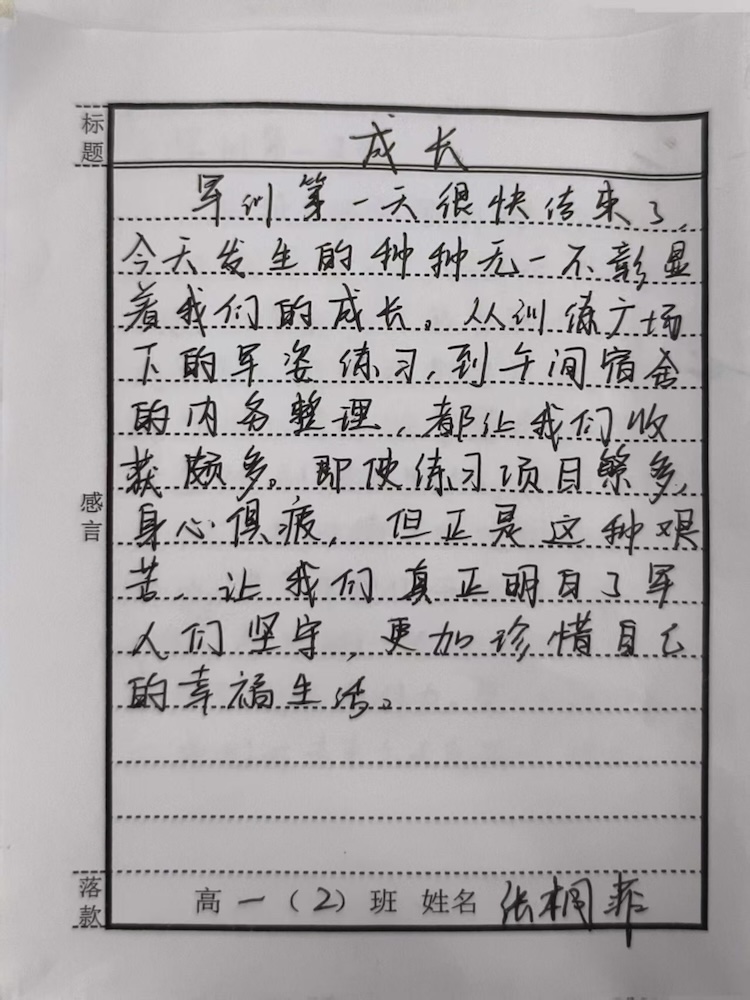 标题
成长
军训第一天很快结束了，
今天发生的种种无一不彰显
着我们的成长。从训练广场
下的军姿练习，到午间宿舍
的内务整理，都让我们收
获颇多。即使练习项目繁多，
身心俱疲，但正是这种艰
苦，让我们真正明白了军
人们坚守，更加珍惜自己
的幸福生活。
感言
落款
高一（2）班 姓名 张桐菲